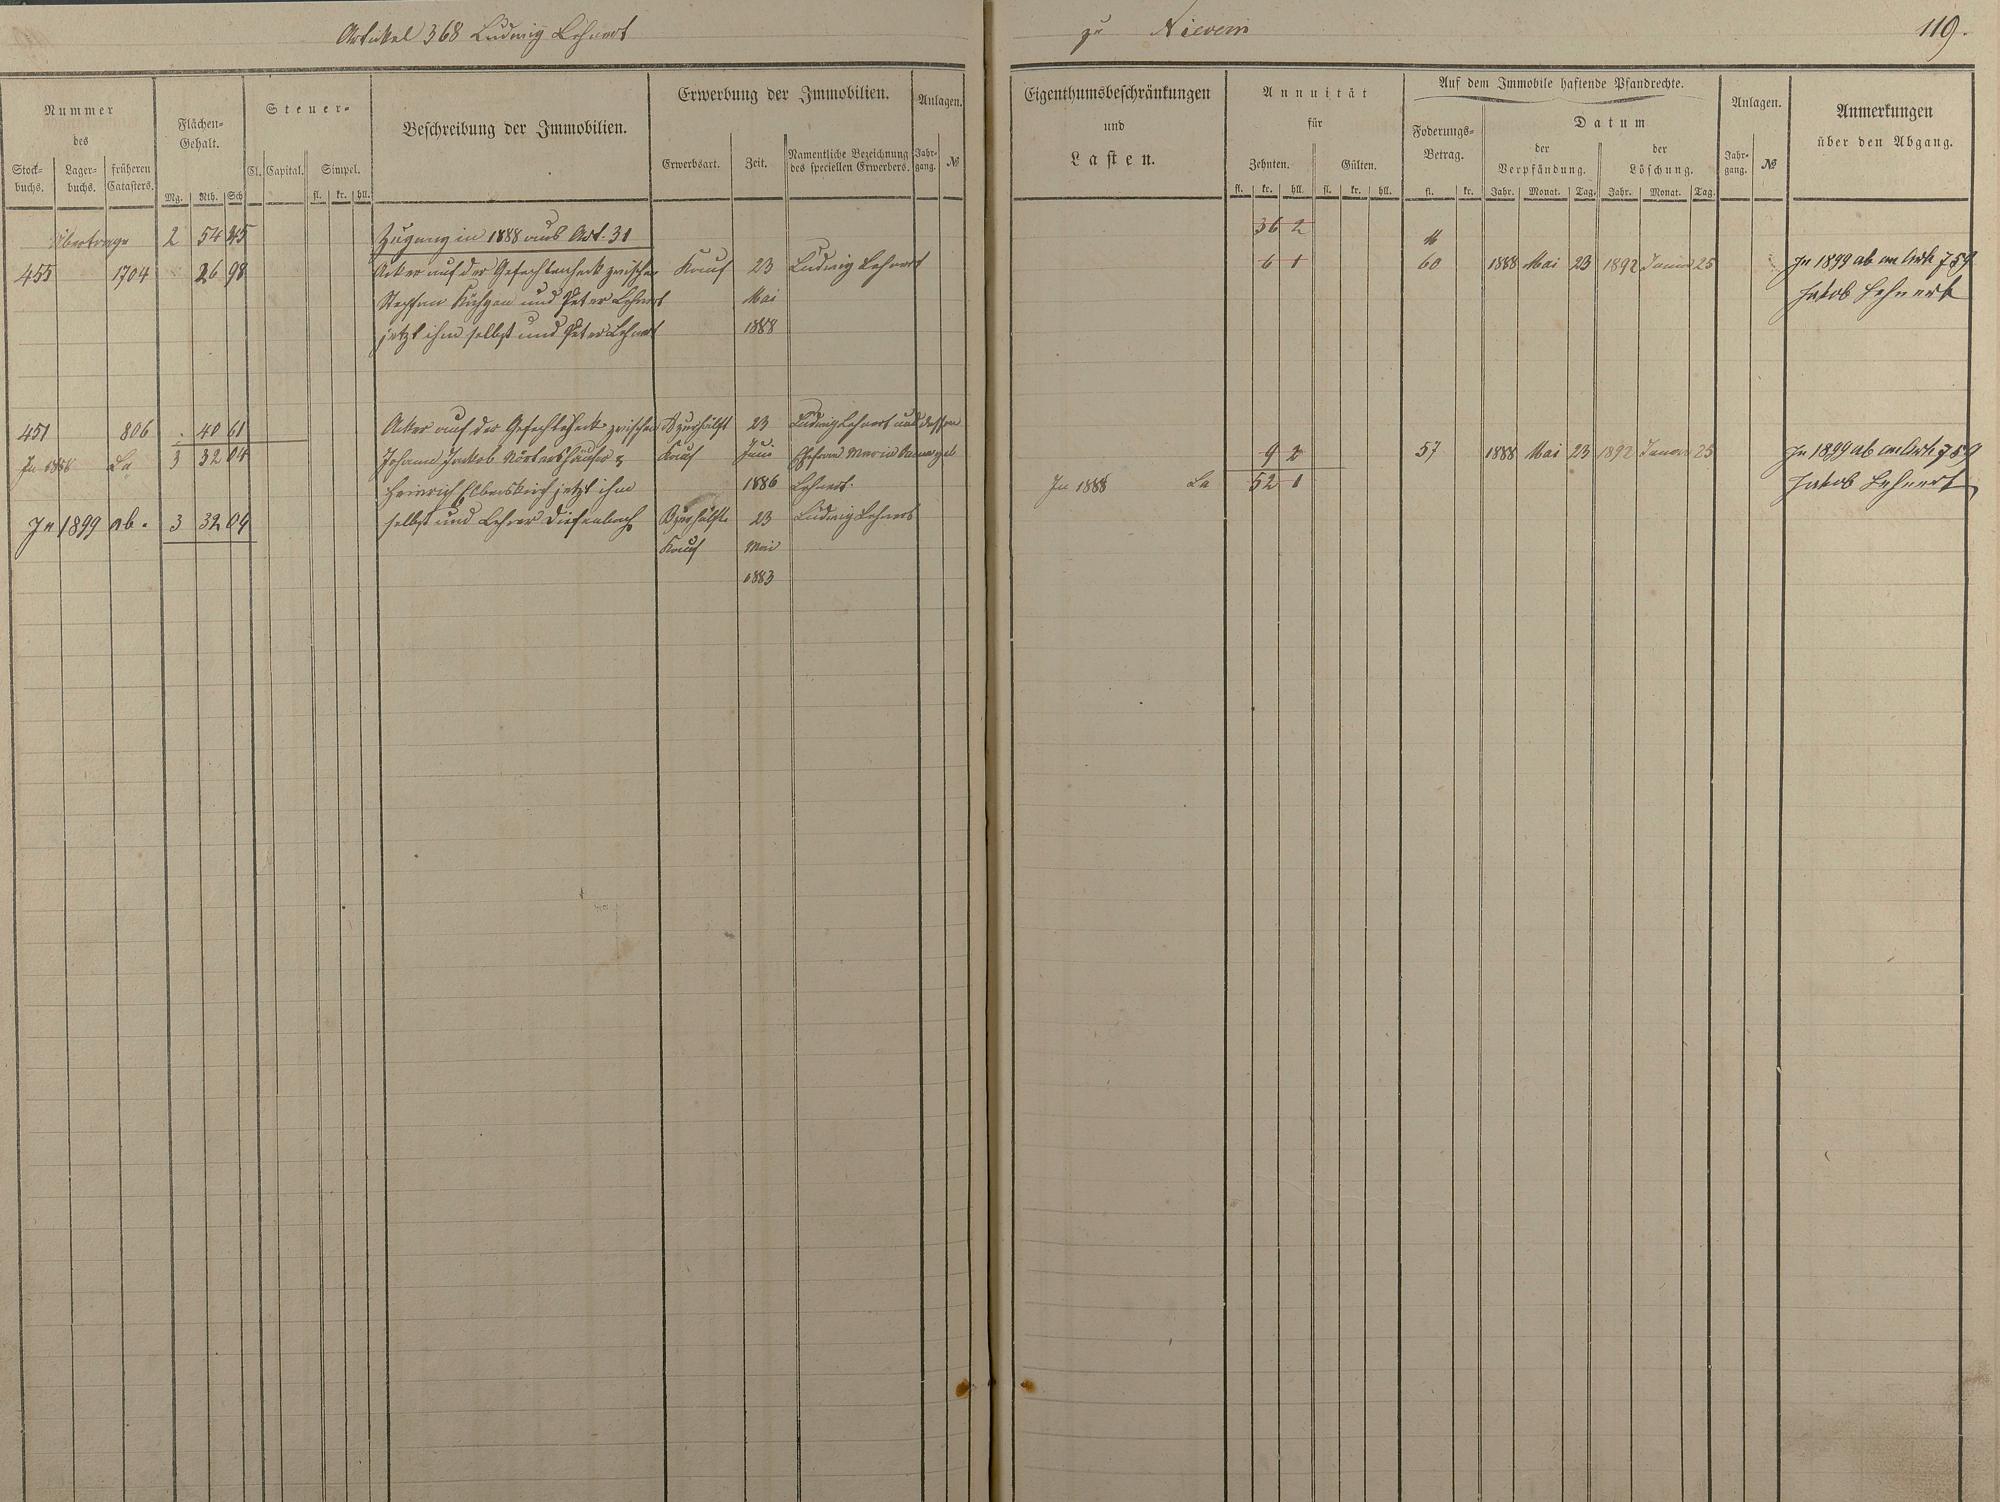 Artikel 368 Ludwig Lehnert
zu Nievern
119.
Nummer
des
Stock-
buchs.
Lager-
buchs.
früheren
Catasters.
Flächen-
Gehalt.
Mg. Rth. Sch
Steuer-
Cl. Capital. Simpel.
fl. kr. hll.
Beschreibung der Immobilien.
Erwerbung der Immobilien.
Erwerbsart. Zeit.
Namentliche Bezeichnung
des speciellen Erwerbers.
Anlagen.
Jahr-
gang.
№
Eigenthumsbeschränkungen
und
Lasten.
Annuität
für
Zehnten. Gülten.
fl. kr. hll. fl. kr. hll.
Auf dem Immobile haftende Pfandrechte.
Foderungs-
Betrag.
fl. kr.
Datum
der
Verpfändung.
Jahr. Monat. Tag.
der
Löschung.
Jahr. Monat. Tag.
Anlagen.
Jahr-
gang.
№
Anmerkungen
über den Abgang.
Übertrage 2 54 45 Zugang in 1888 aus Art. 31 36 2 M
455 1704 26 98 Acker auf der zwischen Kauf 23 Ludwig Lehnert 6 1 60 1888 Mai 23 1892 Januar 25 In 1899 ab an Art. 759
Stephan und Peter Lehnert Mai Jakob Lehnert
jetzt ihm selbst und Peter Lehnert 1888
451 806 40 61 Acker auf der zwischen zur Hälfte 23 Ludwig Lehnert und dessen
In 1888 La 3 32 04 Johann Jakob Nörtershäuser & Kauf Juni Ehefrau Maria geb. 9 2 57 1888 Mai 23 1892 Januar 25 In 1899 ab an Art. 759
Heinrich jetzt ihm 1886 Lehnert. In 1888 La 52 1 Jakob Lehnert
In 1899 ab. 3 32 04 selbst und Lehrer Diefenbach zur Hälfte 23 Ludwig Lehnert
Kauf Mai
1883